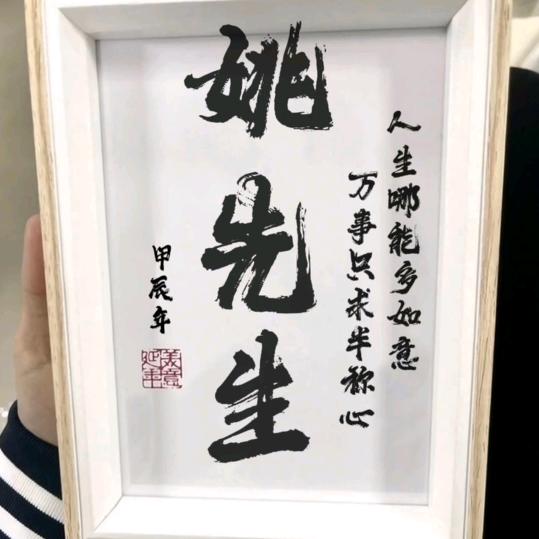 人生哪能多如意
万事只求半称心
姚先生
甲辰年
美意延年